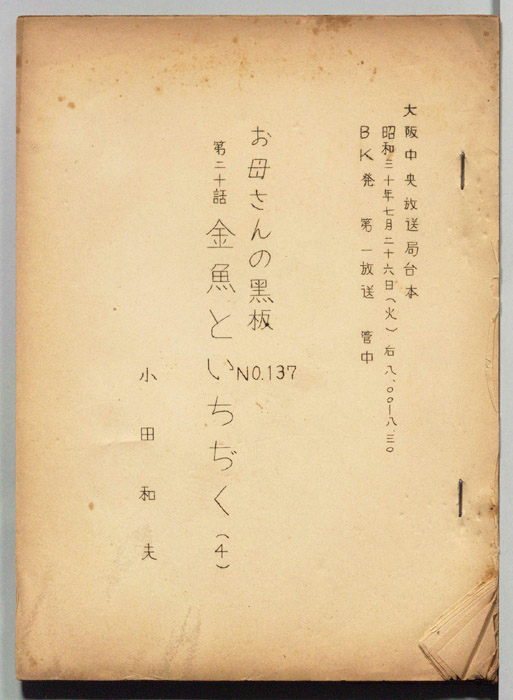 大阪中央放送局台本
昭和三十年七月二十六日(火)后八、〇〇―八、三〇
BK発 第一放送 管中
お母さんの黑板 NO.137
第二十話 金魚といちぢく(4)
小田和夫